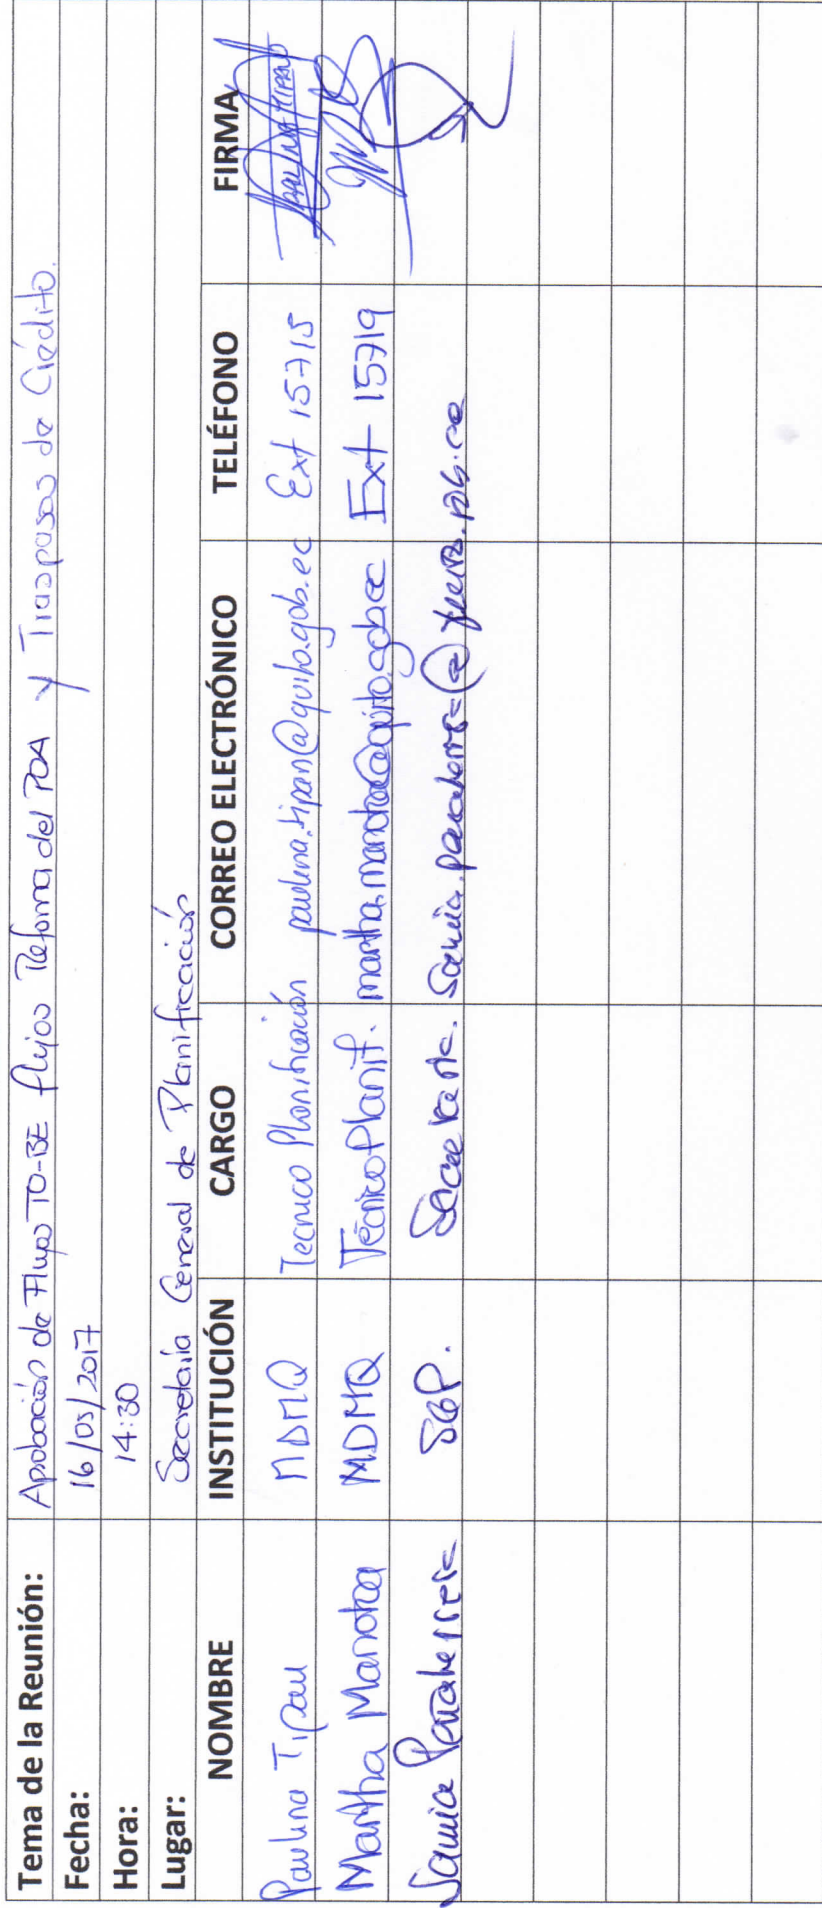 Tema de la Reunión: Aprobación de Flujos TO-BE flujos Reforma del POA y Traspasos de Crédito.
Fecha: 16/05/2017
Hora: 14:30
Lugar: Secretaría General de Planificación
NOMBRE INSTITUCIÓN CARGO CORREO ELECTRÓNICO TELÉFONO FIRMA
Paulina Tipan MDMQ Tecnico Planificación paulina.tipan@quito.gob.ec Ext 15715
Martha Manotoa MDMQ Técnico Planif. martha.manotoa@quito.gob.ec Ext 15719
Peñaherrera SGP.